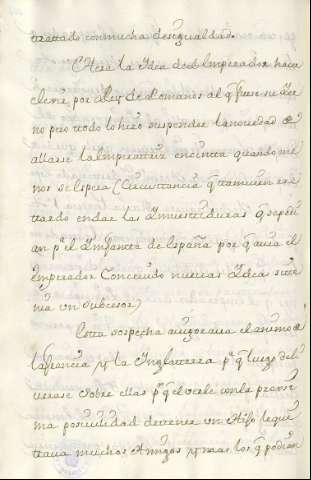 trattado con mucha desigualdad.
Otra la Idea del Emperador hacer
elexir por Rey de Romanos al q fuese su
no pero todo lo hizo suspender la novedad de
allarse la Imperatriz encinta quando me
nos se espera (Circunstancia q tamvien re
tardo en dar las Ymvestiduras q se pedi
an pa el Ynfante de España por q avia el
emperador Concevido nuevas Ydeas si te
nia un subcesor)
Esta sospecha mizo avia el animo de
la francia y la Inglaterra pa q luego
uiesse sobre ellas pa q el verle con la proxi
ma posivilidad de tener un Hijo le qui
tava muchos Amigos y mas los q podian